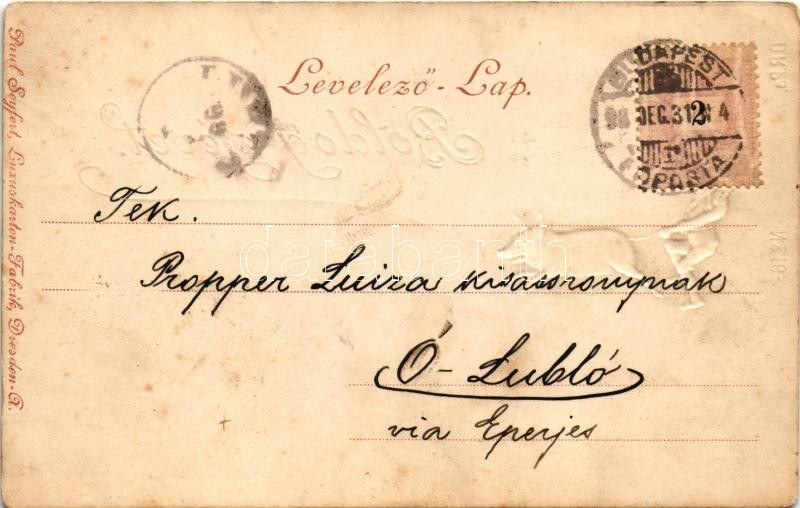 Levelező-Lap.
BUDAPEST
98 DEC. 31 N 4
FŐPOSTA
2
Tek.
Propper Luiza kisasszonynak
Ó-Lubló
via Eperjes
Paul Seyfert, Luxuskarten-Fabrik, Dresden-A.
darabanth